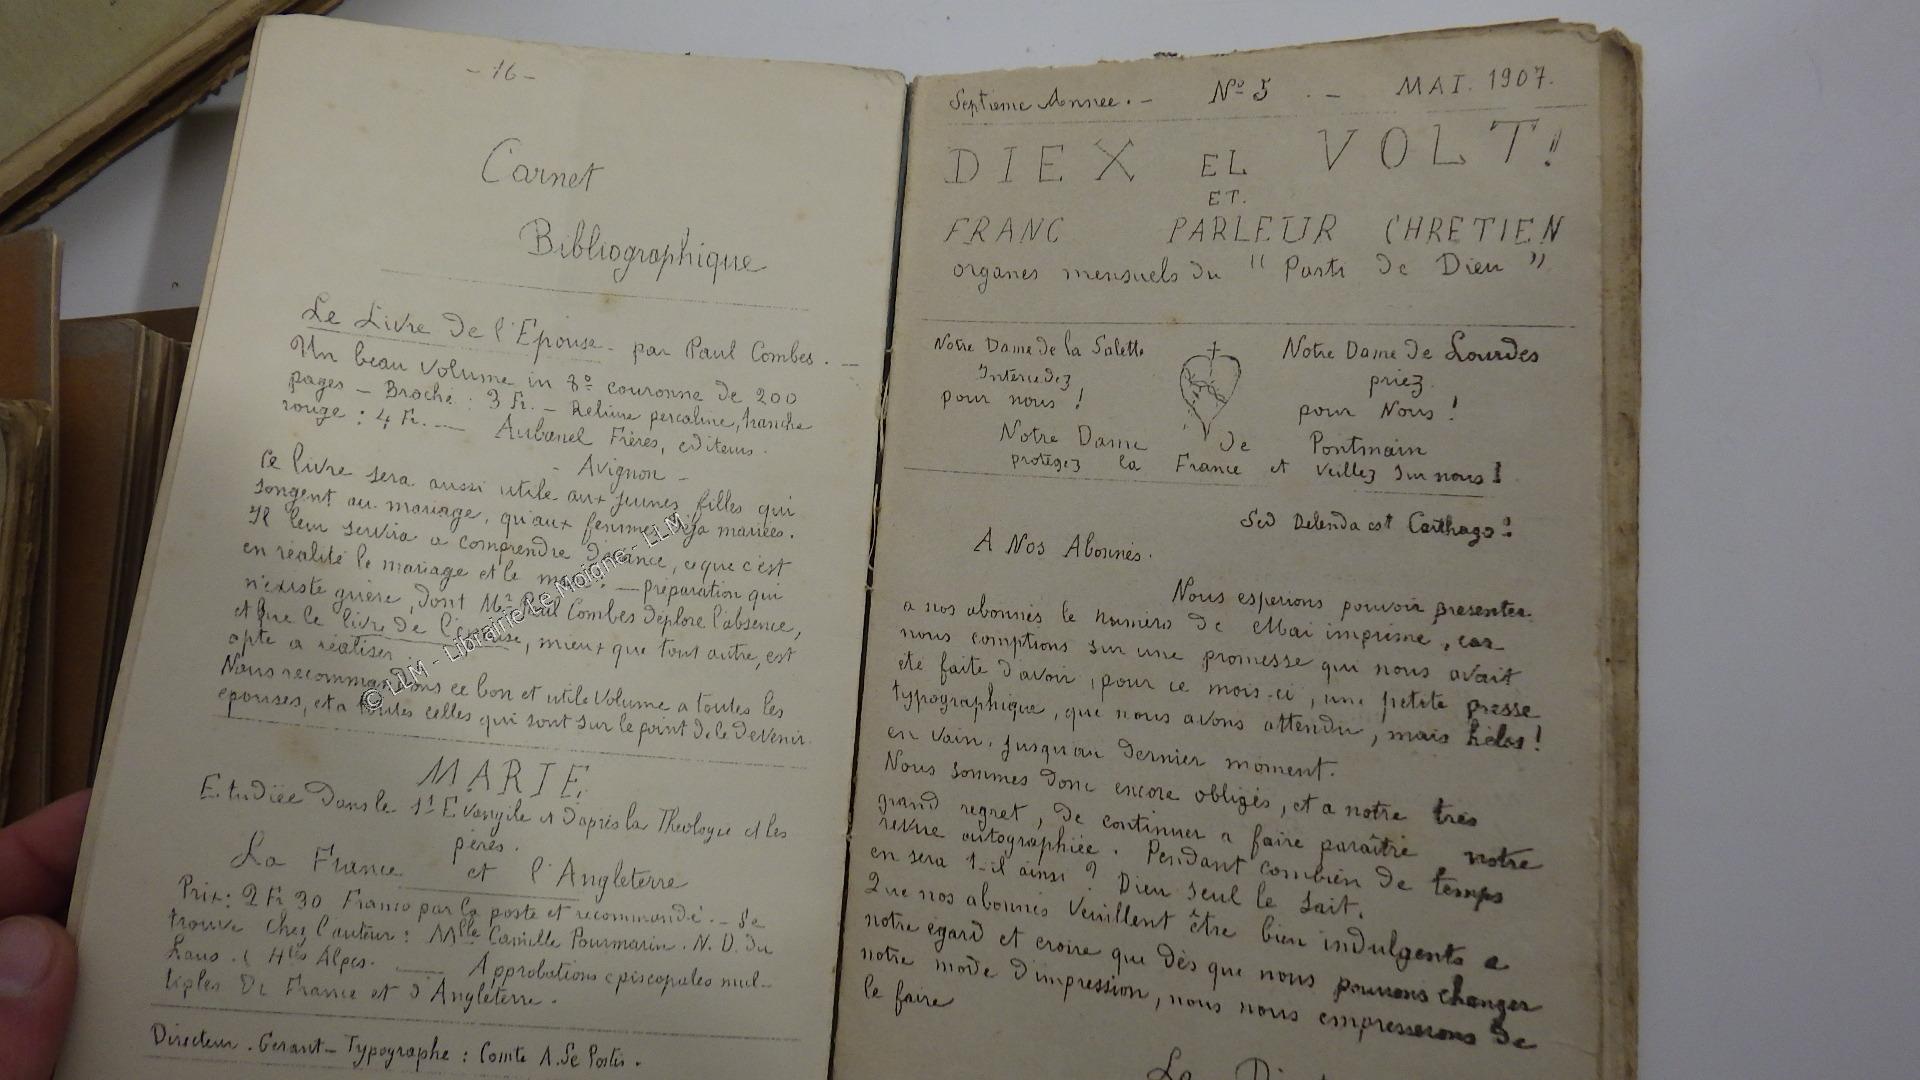 - 16 -
Carnet
Bibliographique
Le Livre de l'Epouse - par Paul Combes. -
Un beau volume in 8º couronne de 200
pages - Broché : 3 Fr. - Reliure percaline, tranche
rouge : 4 Fr. - Aubanel Frères, editeurs.
- Avignon -
Ce livre sera aussi utile aux jeunes filles qui
songent au mariage, qu'aux femmes déja mariées.
Il leur servira a comprendre d'avance, ce que c'est
en réalité le mariage et le : - préparation qui
n'existe guère, dont Mr Paul Combes déplore l'absence,
et que le livre de l'épouse, mieux que tout autre, est
apte a réaliser
Nous recommandons ce bon et utile Volume a toutes les
epouses, et a toutes celles qui sont sur le point de le devenir.
MARIE.
Etudiée dans le St Evangile et d'après la Théologie et les
pères.
La France et l'Angleterre
Prix: 2 Fr 30 Franco par la poste et recommandé. - Se
trouve chez l'auteur : Mlle Camille Pourmarin. N. D. du
Laus. Htes Alpes. - Approbations episcopales mul-
tiples De France et d'Angleterre.
Directeur. Gerant - Typographe : Comte A. Se Postis.
© LLM - Librairie Le Moigne - LLM
Septieme Annee. - Nº 5 . - MAI. 1907.
DIEX EL VOLT!
ET.
FRANC PARLEUR CHRETIEN
organes mensuels du " Parti de Dieu "
Notre Dame de la Salette
Intercedez
pour nous !
Notre Dame de Lourdes
priez
pour Nous !
Notre Dame de Pontmain
protegez la France et Veillez sur nous !
Sed Delenda est Carthago !
A Nos Abonnés.
Nous esperions pouvoir presenter
a nos abonnés le numéro de Mai imprime, car
nous comptions sur une promesse qui nous avait
été faite d'avoir, pour ce mois-ci, une petite presse
typographique, que nous avons attendu, mais hélas!
en vain, jusqu'au dernier moment.
Nous sommes donc encore obligés, et a notre très
grand regret, de continuer a faire paraître notre
revue autographiée. Pendant combien de temps
en sera t-il ainsi ? Dieu seul le sait.
Que nos abonnés Veuillent être bien indulgents a
notre égard et croire que dès que nous pourrons changer
notre mode d'impression, nous nous empresserons de
le faire